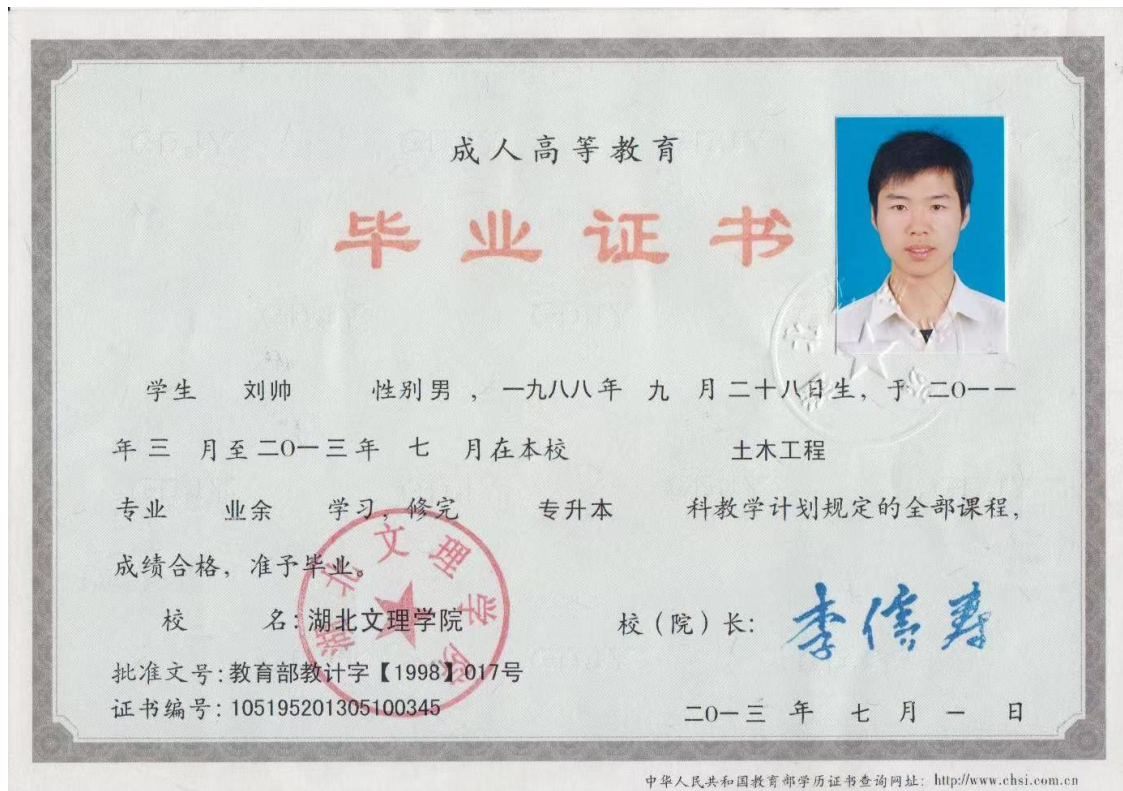 成人高等教育
毕业证书
学生 刘帅 性别 男 ，一九八八年 九 月二十八日生，于 二〇一一
年 三 月至 二〇一三年 七 月在本校 土木工程
专业 业余 学习，修完 专升本 科教学计划规定的全部课程，
成绩合格，准予毕业。
湖北文理学院
校 名：湖北文理学院 校（院）长：李信寿
批准文号：教育部教计字【1998】017号
证书编号：105195201305100345
二〇一三 年 七 月 一 日
中华人民共和国教育部学历证书查询网址：http://www.chsi.com.cn